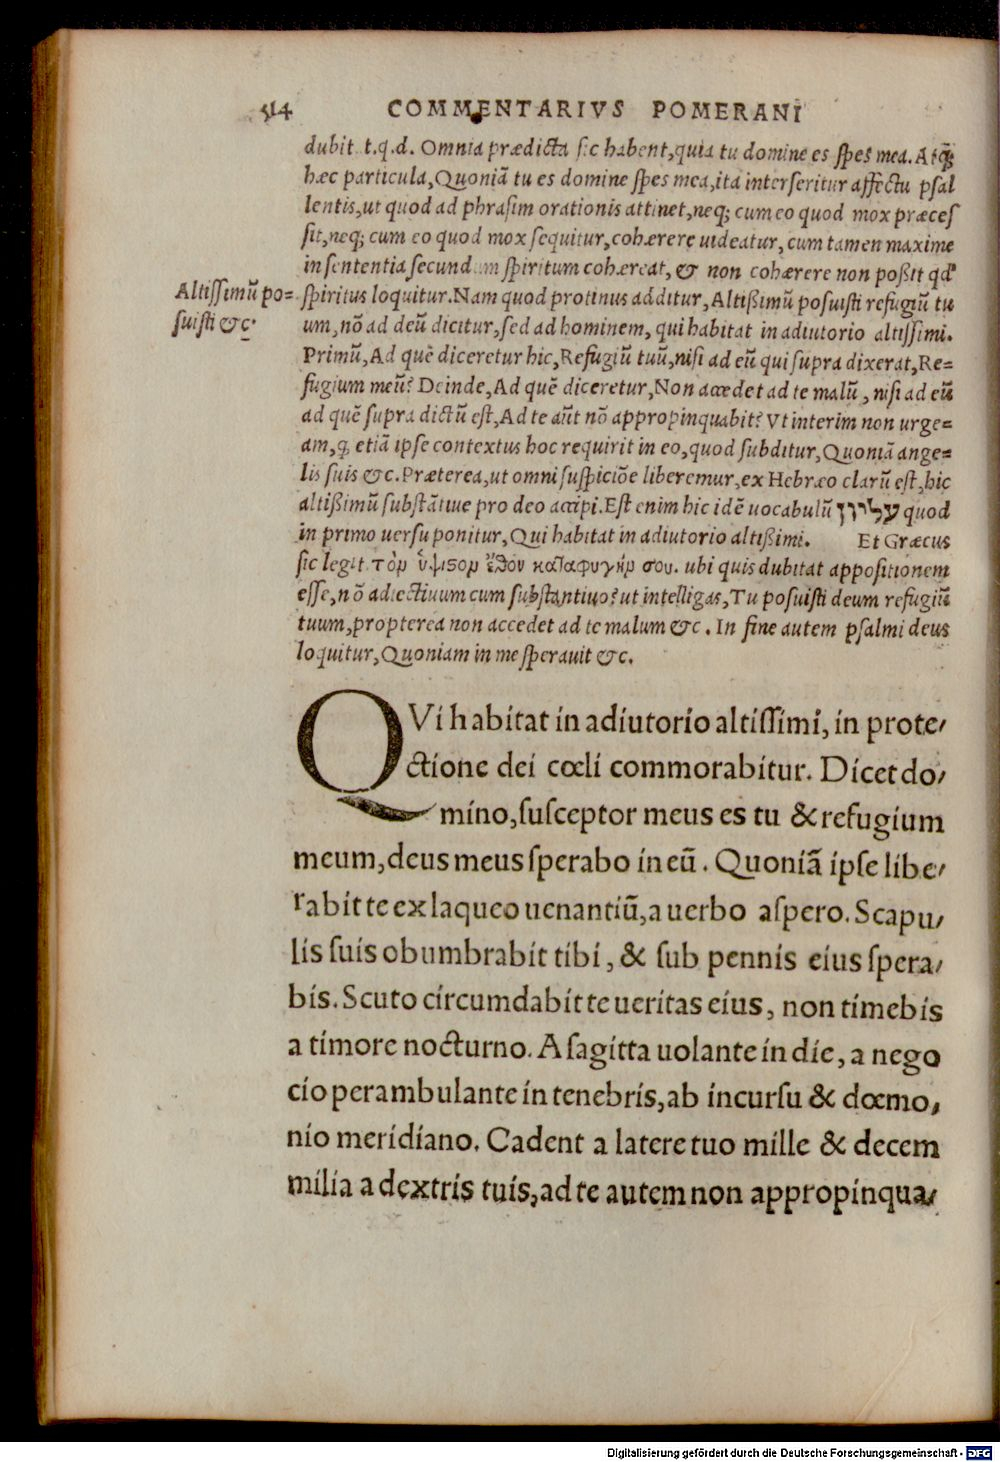 514 COMMENTARIVS POMERANI
dubit t.q.d. Omnia prædicta sic habent, quia tu domine es spes mea. Atq;
hæc particula, Quoniã tu es domine spes mea, ita interseritur affectu psal
lentis, ut quod ad phrasim orationis attinet, neq; cum eo quod mox præces
sit, neq; cum eo quod mox sequitur, cohærere uideatur, cum tamen maxime
in sententia secundum spiritum cohæreat, & non cohærere non poßit qđ
Altissimũ po=
suisti &c.
spiritus loquitur. Nam quod protinus additur, Altißimũ posuisti refugiũ tu
um, nõ ad deũ dicitur, sed ad hominem, qui habitat in adiutorio altissimi.
Primũ, Ad quẽ diceretur hic, Refugiũ tuũ, nisi ad eũ qui supra dixerat, Re=
fugium meũ? Deinde, Ad quẽ diceretur, Non accedet ad te malũ, nisi ad eũ
ad quẽ supra dictũ est, Ad te aũt nõ appropinquabit? Vt interim non urge=
am, q, etiã ipse contextus hoc requirit in eo, quod subditur, Quoniã ange=
lis suis &c. Præterea, ut omni suspiciõe liberemur, ex Hebræo clarũ est, hic
altißimũ substãtiue pro deo accipi. Est enim hic idẽ uocabulũ עליון quod
in primo uersu ponitur, Qui habitat in adiutorio altißimi. Et Græcus
sic legit τὸν ὕψιςον ἔθου καταφυγήν σου. ubi quis dubitat appositionem
esse, nõ adiectiuum cum substantiuo? ut intelligas, Tu posuisti deum refugiũ
tuum, propterea non accedet ad te malum &c. In fine autem psalmi deus
loquitur, Quoniam in me sperauit &c.
QVi habitat in adiutorio altissimi, in prote/
ctione dei cœli commorabitur. Dicet do/
mino, susceptor meus es tu & refugium
meum, deus meus sperabo in eũ. Quoniã ipse libe/
rabit te ex laqueo uenantiũ, a uerbo aspero. Scapu/
lis suis obumbrabit tibi, & sub pennis eius spera/
bis. Scuto circumdabit te ueritas eius, non timebis
a timore nocturno. A sagitta uolante in die, a nego
cio perambulante in tenebris, ab incursu & dœmo,
nio meridiano. Cadent a latere tuo mille & decem
milia a dextris tuis, ad te autem non appropinqua/
Digitalisierung gefördert durch die Deutsche Forschungsgemeinschaft - DFG